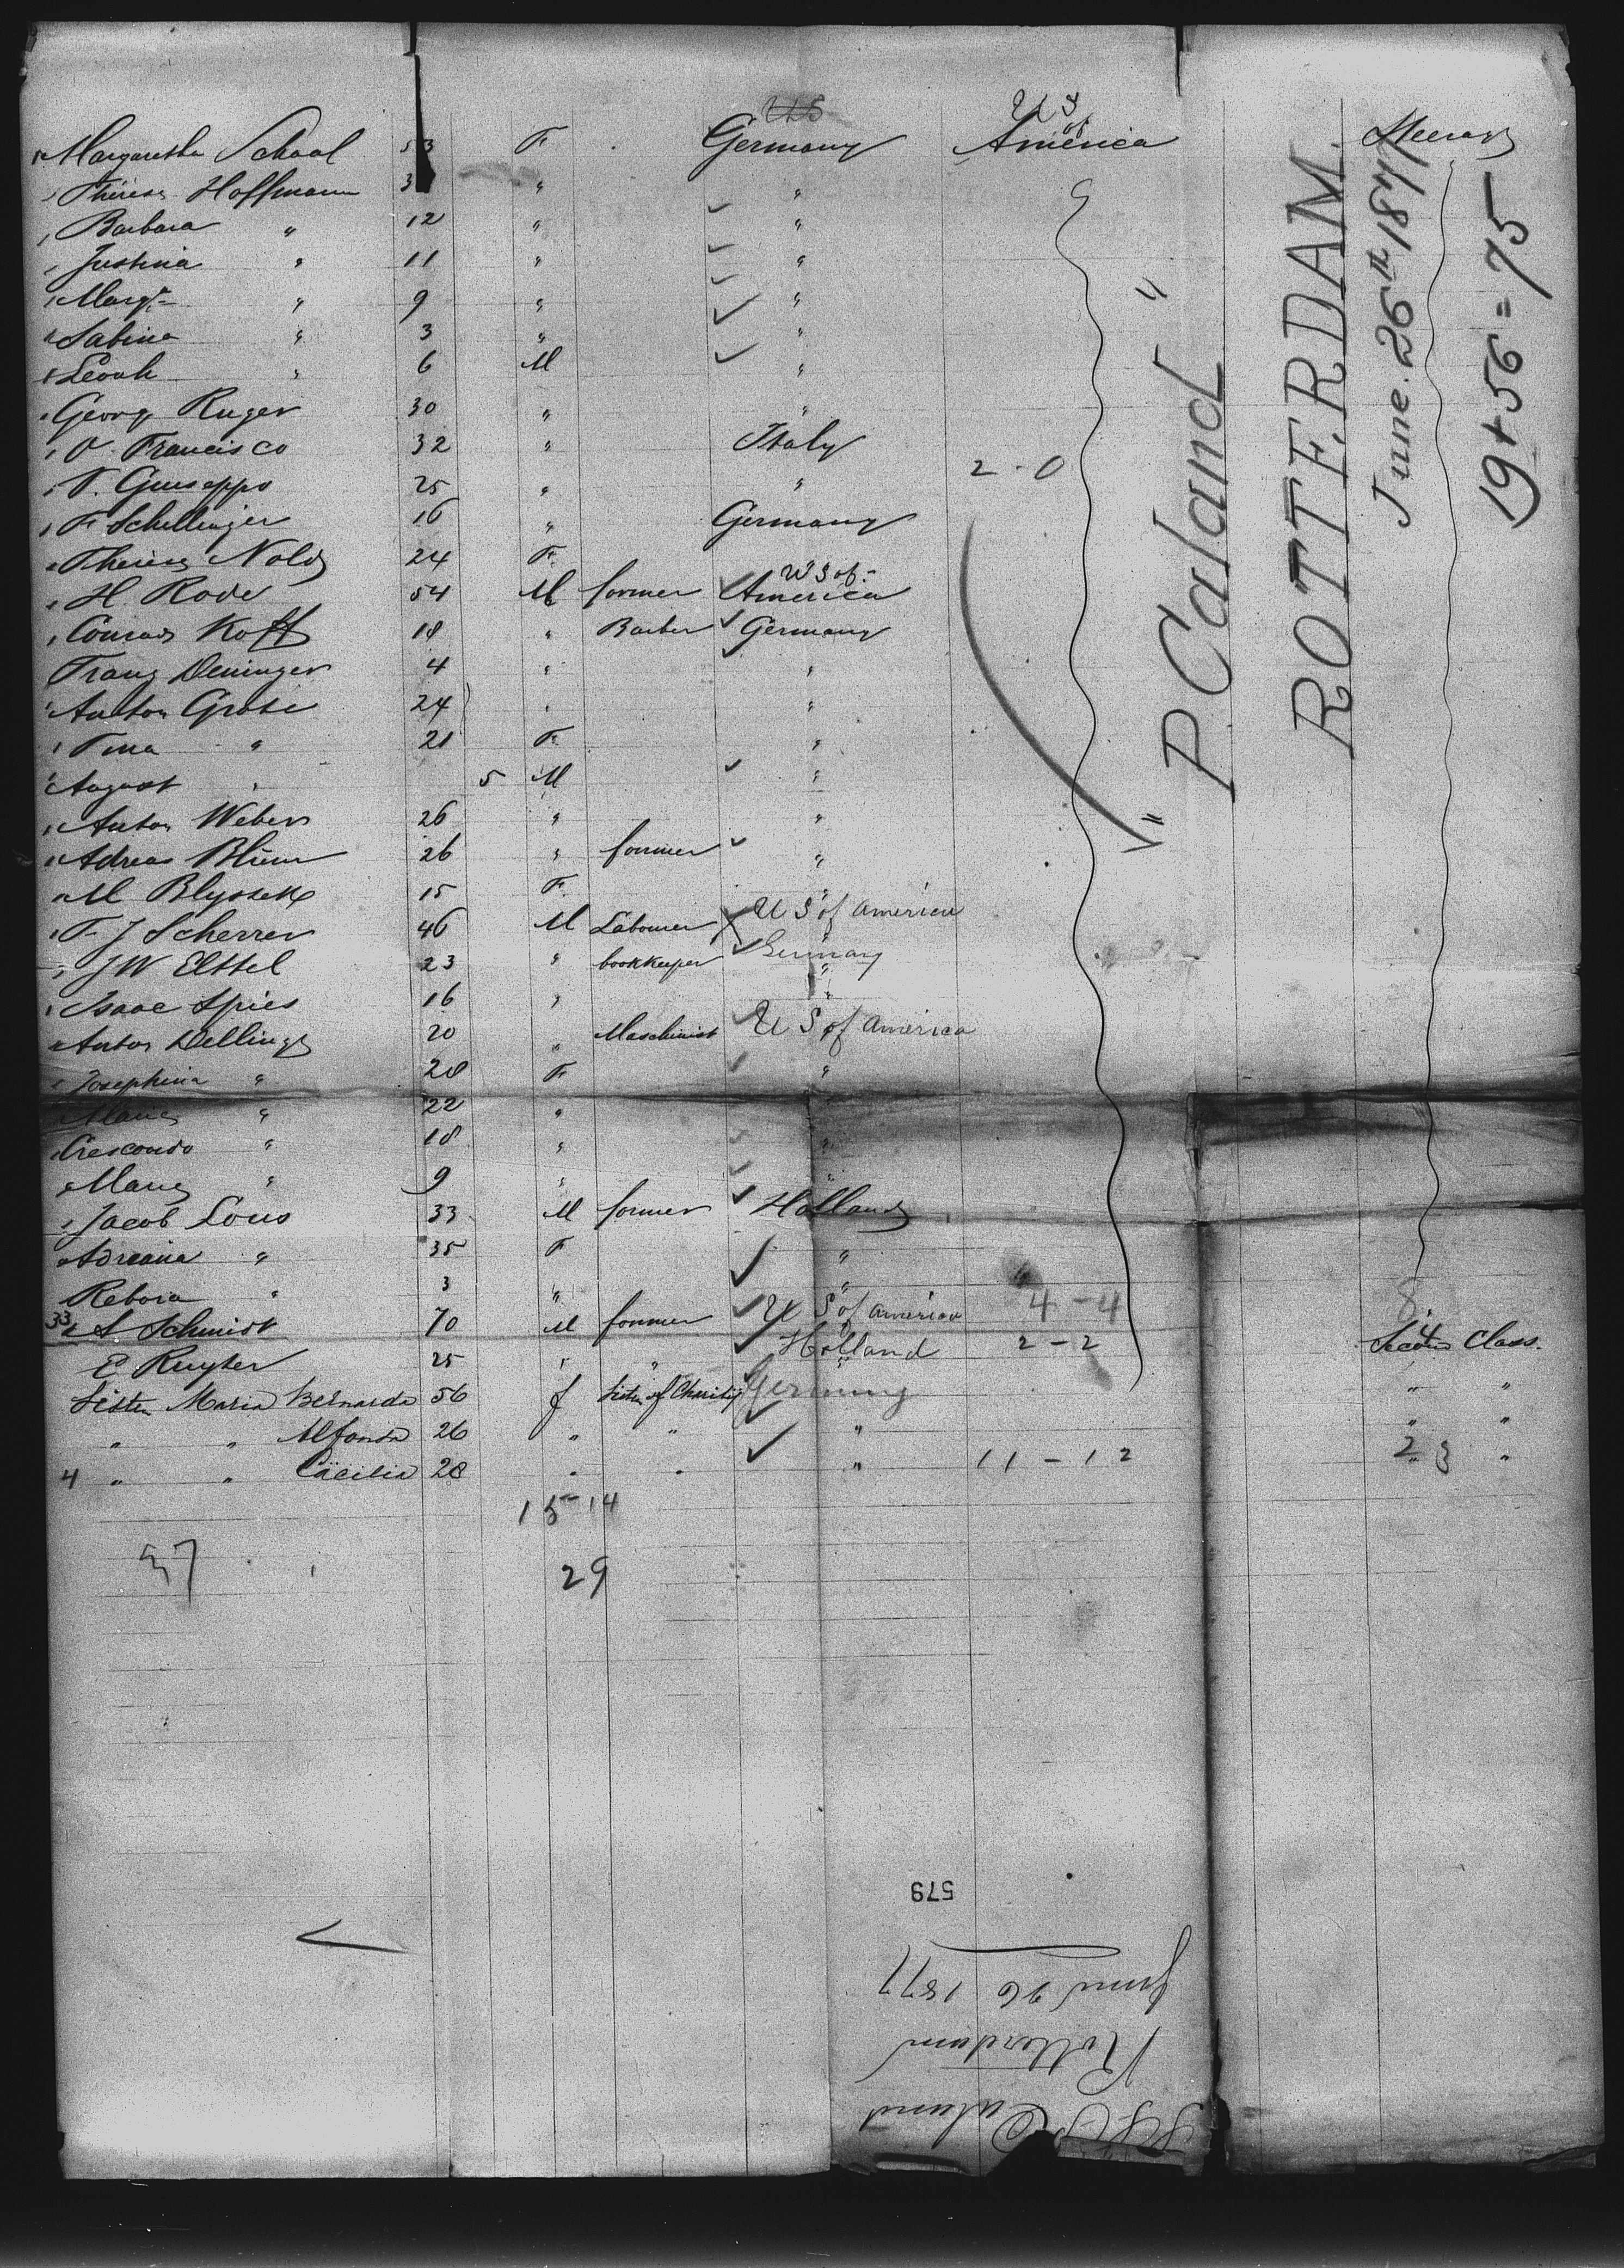 US
Margaretha Schaal 53 F Germany U S of America Steerage
Theresa Hoffmann 3 " "
Barbara " 12 " "
Justina " 11 " "
Margt " 9 " "
Sabina " 3 " "
" 6 M "
Georg Ruger 30 " "
V. Francisco 32 " Italy
V. Guiseppo 25 " " 2 - 0
F Schellinger 16 " Germany
Theresa Nold 24 F
H. Rode 54 M former U S of America
Conrad Koff 18 " Barber Germany
Franz Deninger 4 " "
Anton Grosi 24 " "
" 21 F "
August " 5 M "
Anton Weber 26 " "
Adreas Blum 26 " former "
M 15 F "
F. J Scherrer 46 M Labourer U S of America
J W Elssel 23 " bookkeeper Germany
Isaac Spies 16 " "
Anton Dellinger 20 " Maschinist U S of America
Josephina " 28 F "
Maria " 22 "
" 18 " "
Maria " 9 " "
Jacob Lous 33 M former Holland
Adreana " 35 F "
" 3 " "
33 S Schmidt 70 M former U S of America 4 - 4 8
E Ruyter 25 " " Holland 2 - 2 4 Second Class.
Sister Maria Bernarda 56 f Sister of Charity Germany " "
" " Alfonsa 26 " " " " "
4 " " Cäcilia 28 " " " 11 - 12 23 "
15 - 14
37
29
" P Caland "
ROTTERDAM.
June. 26th 1877
19 + 56 = 75
579
SS P Caland
Rotterdam
June 26 1877